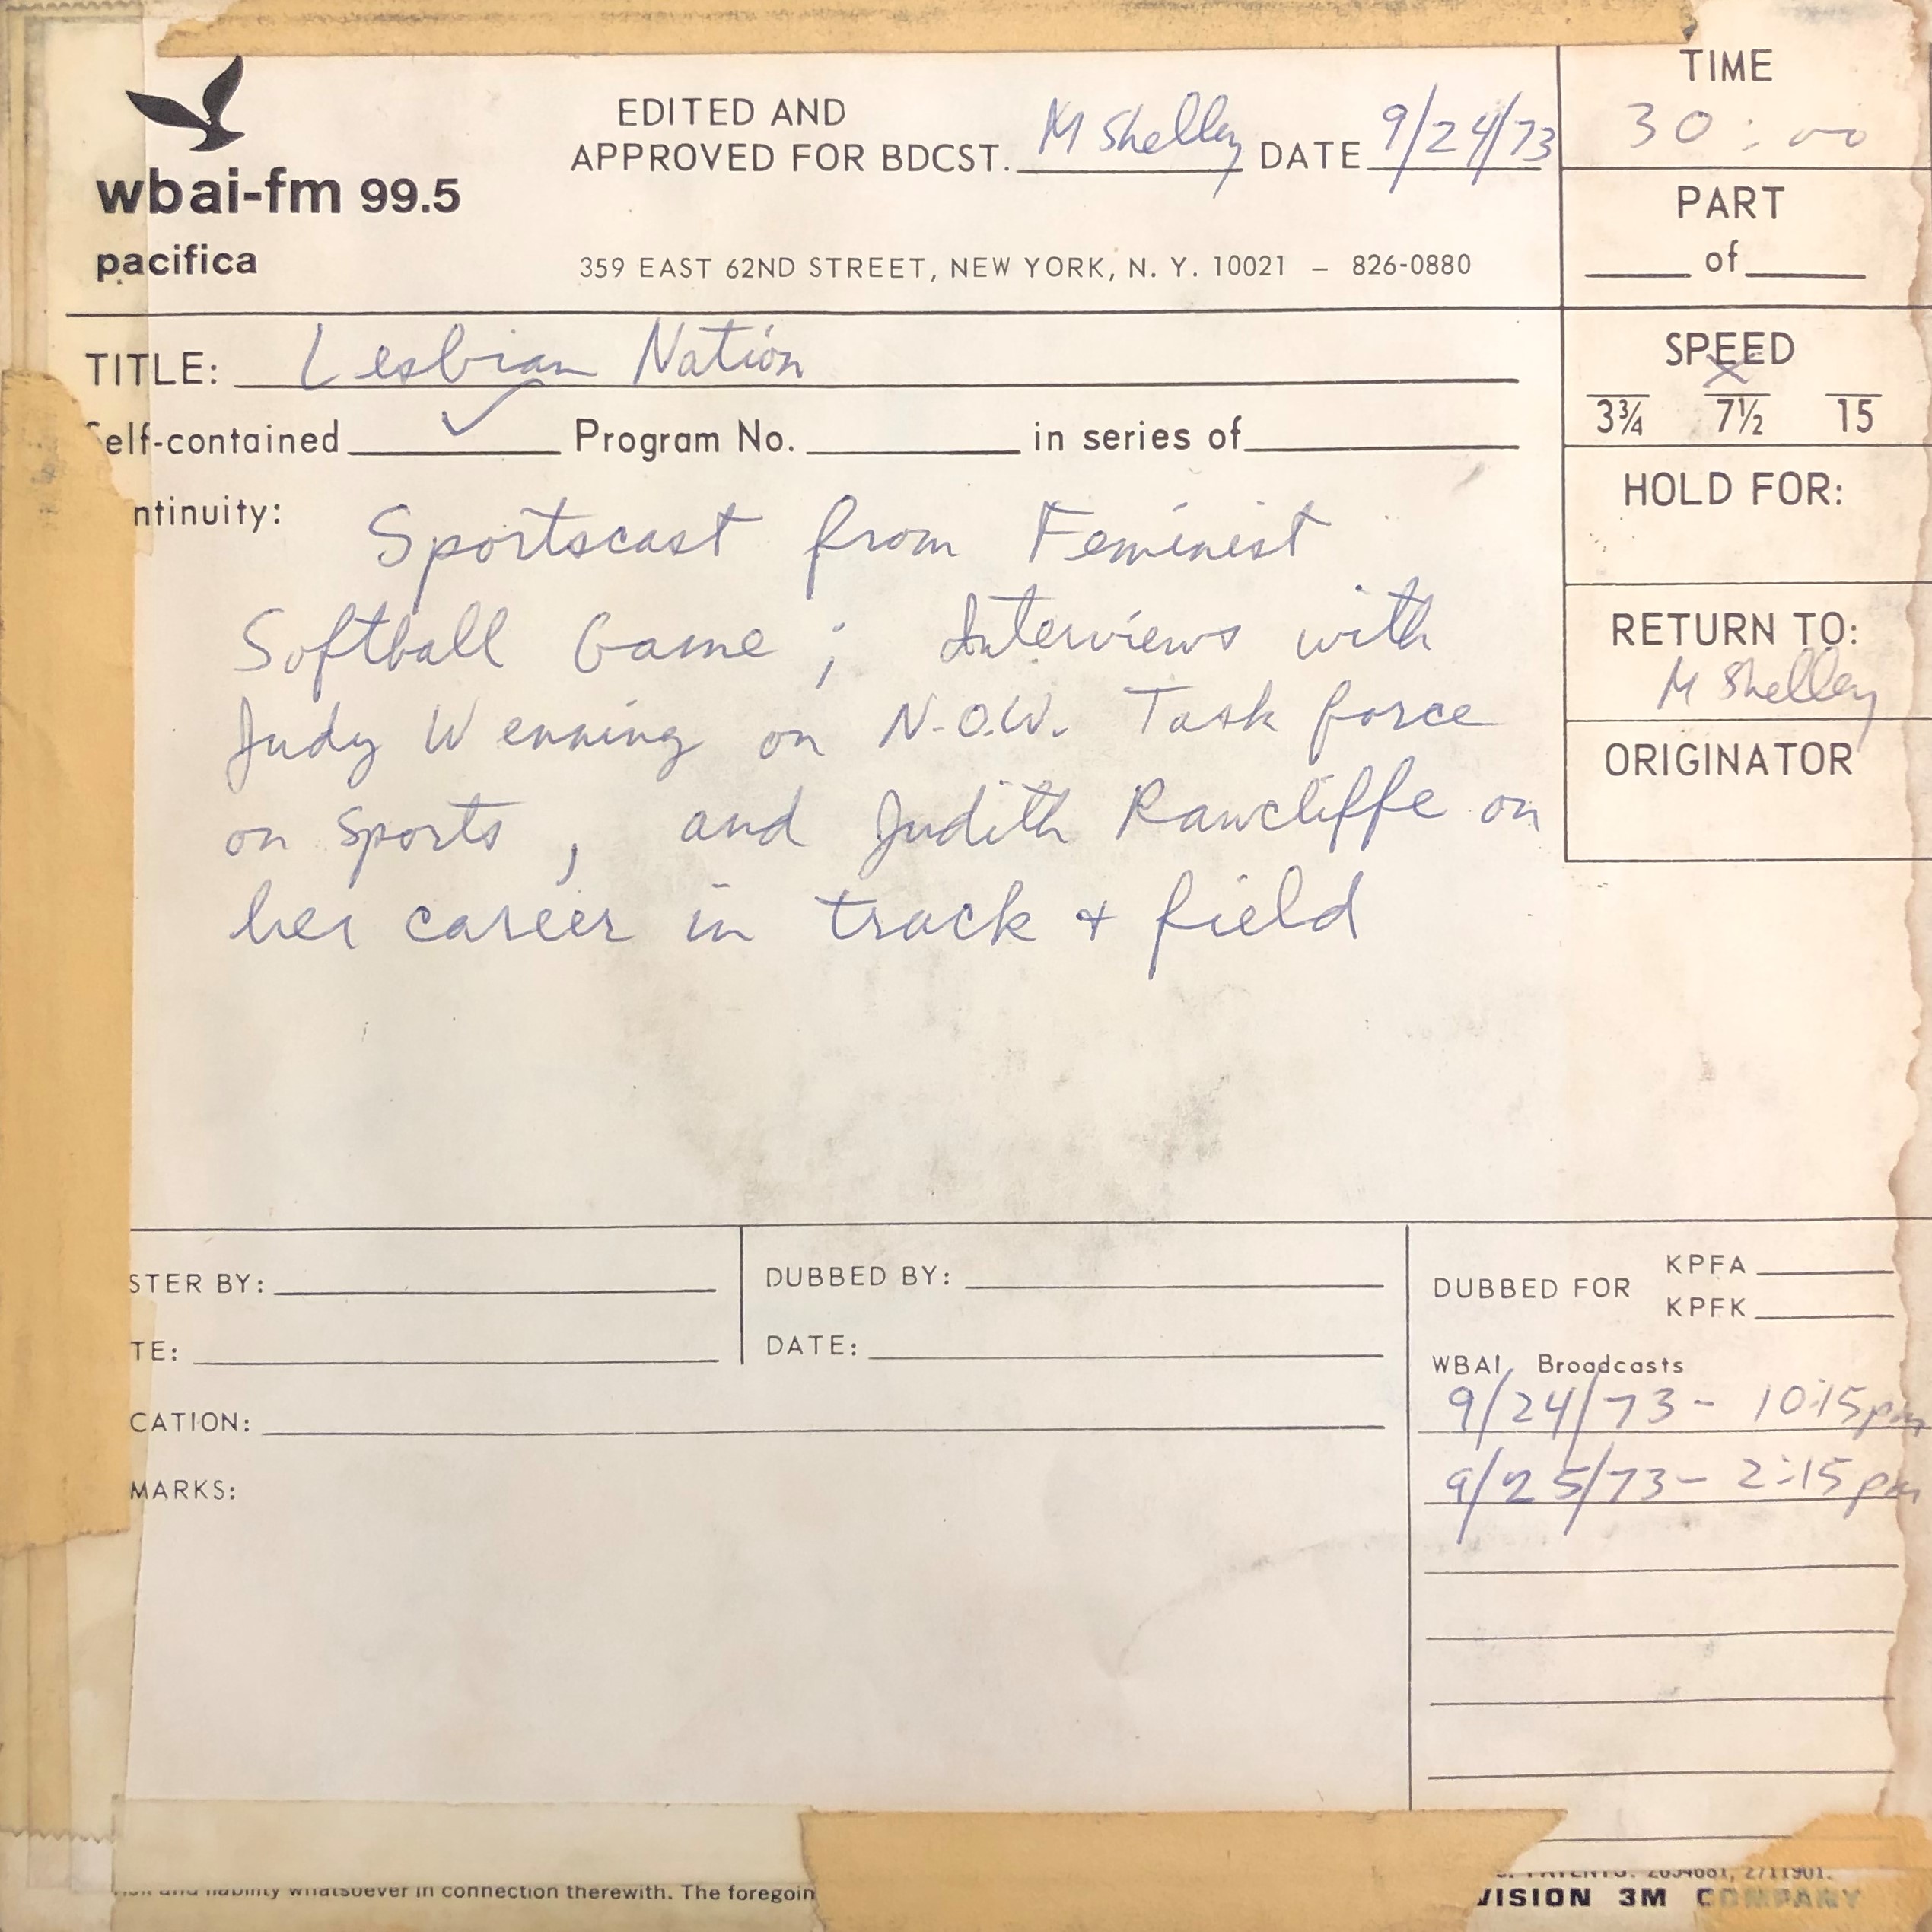 wbai-fm 99.5
pacifica
EDITED AND
APPROVED FOR BDCST. M Shelley DATE 9/24/73
359 EAST 62ND STREET, NEW YORK, N. Y. 10021 – 826-0880
TIME
30:00
PART
of
TITLE: Lesbian Nation
elf-contained ✓ Program No. in series of
SPEED
X
3¾ 7½ 15
HOLD FOR:
RETURN TO:
M Shelley
ORIGINATOR
ntinuity: Sportscast from Feminist
Softball Game; Interviews with
Judy Wenning on N.O.W. Task force
on sports, and Judith Rawcliffe on
her career in track + field
STER BY:
TE:
DUBBED BY:
DATE:
CATION:
MARKS:
DUBBED FOR KPFA
KPFK
WBAI Broadcasts
9/24/73 - 10:15pm
9/25/73 - 2:15pm
and liability whatsoever in connection therewith. The foregoin
PATENTS: 2654681, 2711901.
VISION 3M COMPANY